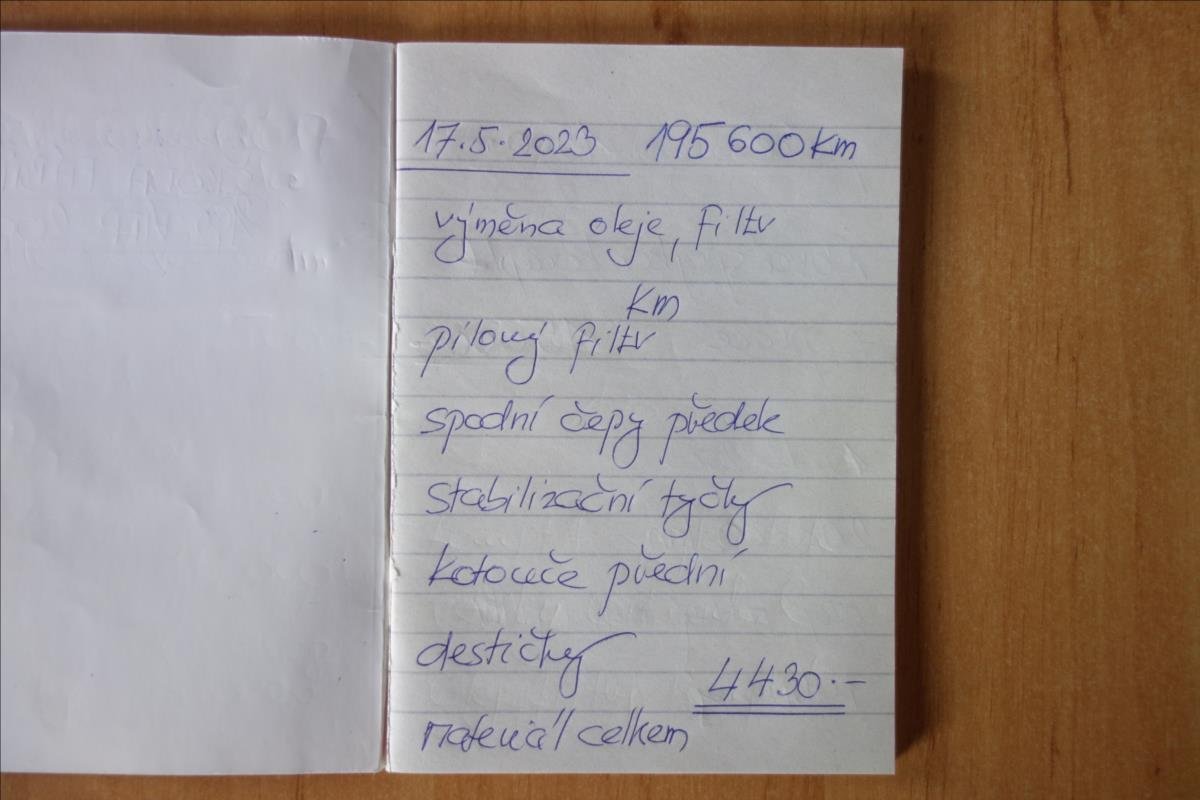 17.5.2023 195 600 km
výměna oleje, filtr
km
pilový filtr
spodní čepy předek
stabilizační tyčky
kotouče přední
destičky
4430.-
materiál celkem